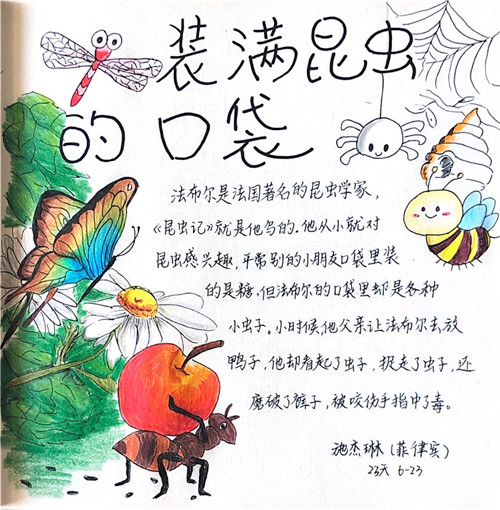 装满昆虫
的口袋
法布尔是法国著名的昆虫学家，
《昆虫记》就是他写的。他从小就对
昆虫感兴趣，平常别的小朋友口袋里装
的是糖，但法布尔的口袋里却是各种
小虫子。小时候，他父亲让法布尔去放
鸭子，他却看起了虫子，捉走了虫子，还
磨破了裤子，被咬伤手指中了毒。
施杰琳（菲律宾）
23天 6-23